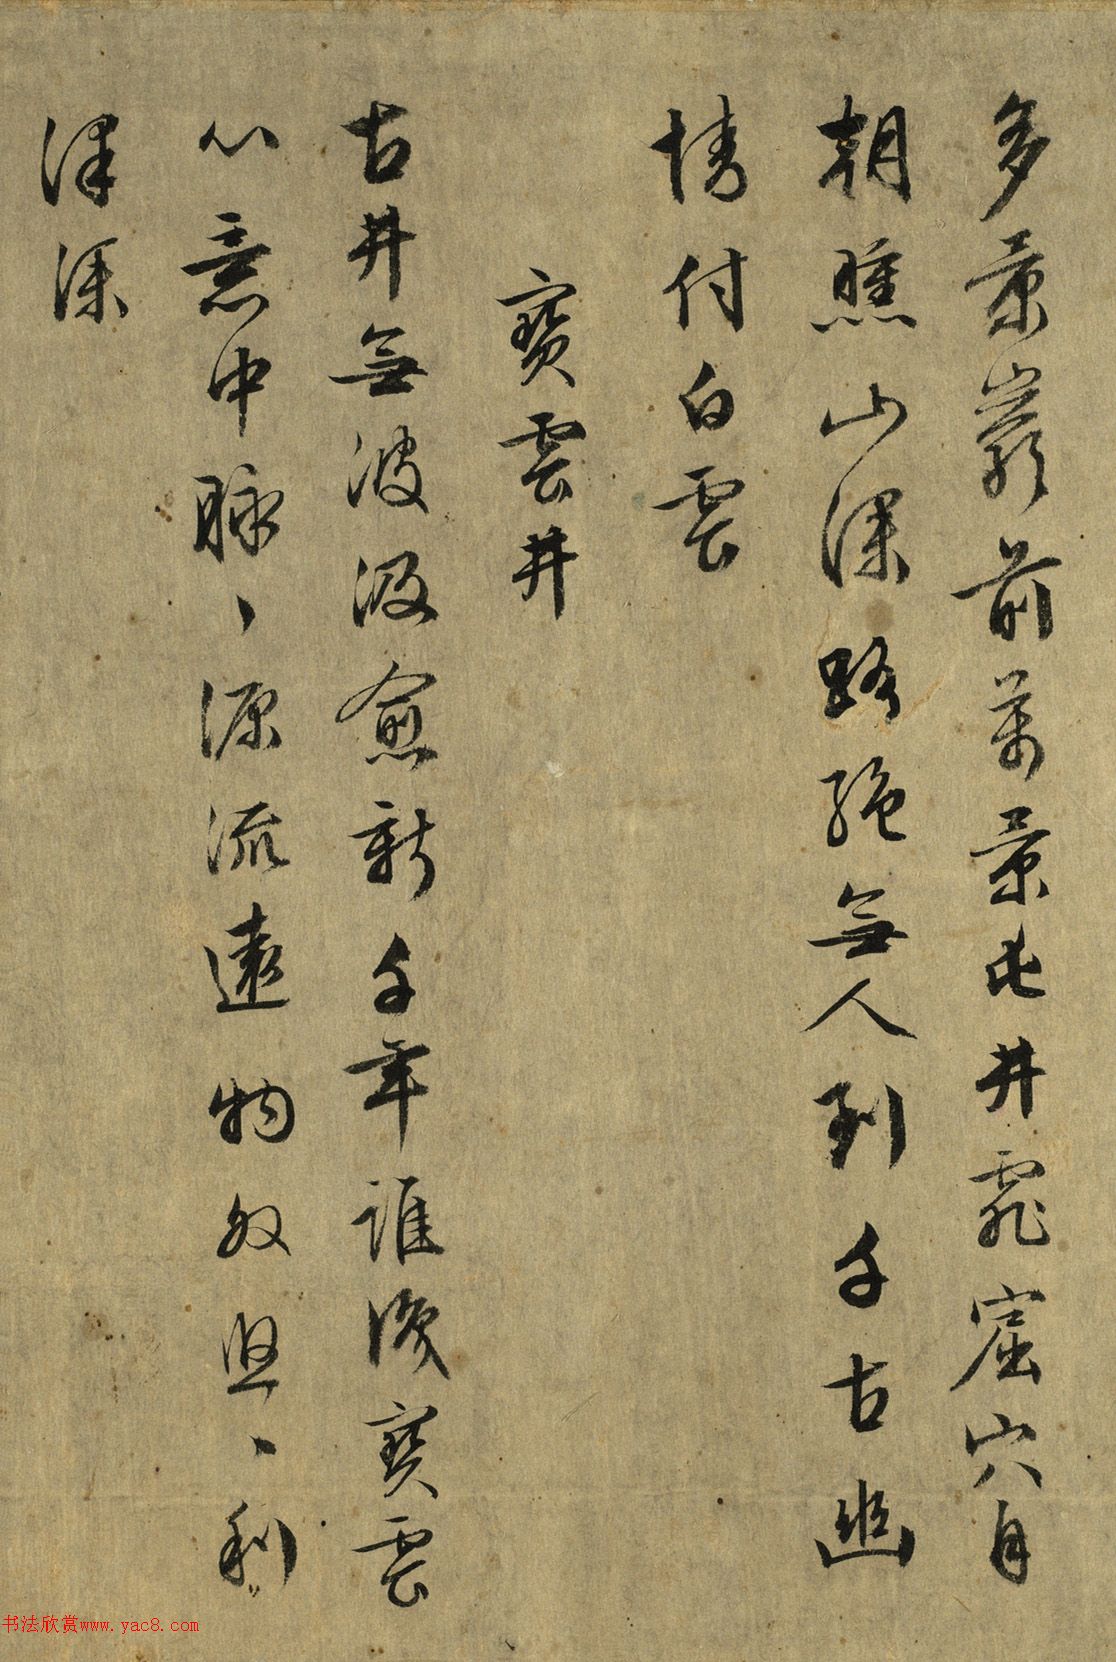 多景巖前萬景屯井霏窟穴自
朝曛山深路絕無人到千古幽
情付白雲
寶雲井
古井無波汲愈新千年誰浚寶雲
心意中脉〻源流遠物利
澤深
书法欣赏www.yac8.com